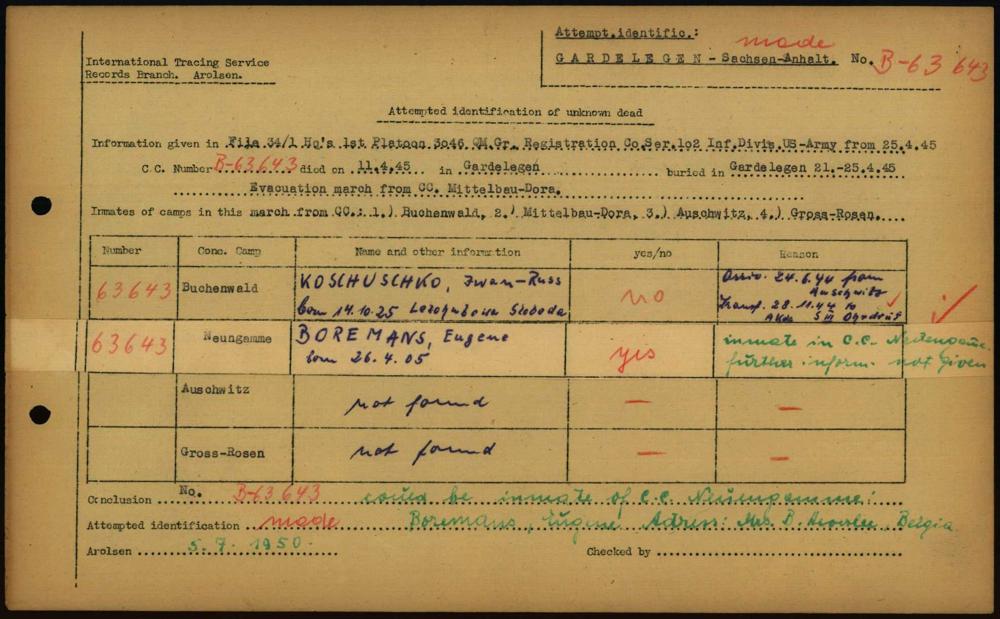 Attempt.identific.:
made
International Tracing Service
Records Branch. Arolsen.
GARDELEGEN - Sachsen-Anhalt. No. B-63 643
Attempted identification of unknown dead
Information given in File 34/1 Hq's 1st Platoon 3o46 QM.Gr. Registration Co.Ser.1o2 Inf.Divis.US-Army from 25.4.45
C.C. Number B-63643 died on 11.4.45 in Gardelegen buried in Gardelegen 21.-25.4.45
Evacuation march from CC. Mittelbau-Dora.
Inmates of camps in this march from CC.: 1.) Buchenwald, 2.) Mittelbau-Dora, 3.) Auschwitz, 4.) Gross-Rosen.
Number Conc. Camp Name and other information yes/no Reason
63643 Buchenwald KOSCHUSCHKO, Iwan-Russ
born 14.10.25 Sloboda
no
24.6.44 from
Auschwitz
Transf. 28.11.44 to
SIII Ohrdruf
63643 Neungamme BOREMANS, Eugene
born 26.4.05
yes
inmate in C.C. Neuengamme.
further inform. not given
Auschwitz not found — —
Gross-Rosen not found — —
Conclusion No. B-63643 could be inmate of C.C. Neuengamme:
Attempted identification made Boremans, Eugene Adress: Mrs. B.
Arolsen 5.7.1950. Checked by